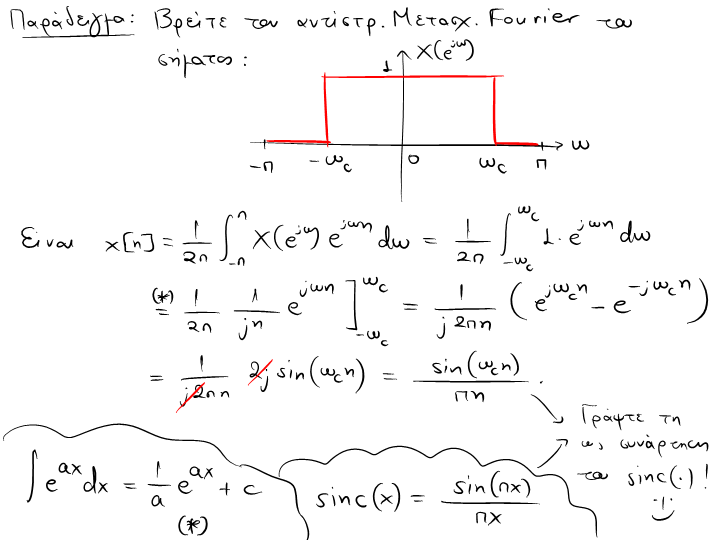 Παράδειγμα: Βρείτε τον αντίστρ. Μετασχ. Fourier του
σήματος:
X(e^{jω})
1
-π -ω_c 0 ω_c π ω
Είναι x[n] = \frac{1}{2π} \int_{-π}^{π} X(e^{jω}) e^{jωn} dω = \frac{1}{2π} \int_{-ω_c}^{ω_c} 1 \cdot e^{jωn} dω
\overset{(*)}{=} \frac{1}{2π} \frac{1}{jn} e^{jωn} ]_{-ω_c}^{ω_c} = \frac{1}{j2πn} (e^{jω_c n} - e^{-jω_c n})
= \frac{1}{j2πn} 2j sin(ω_c n) = \frac{sin(ω_c n)}{πn} .
Γράψτε τη
ως συνάρτηση
του sinc(·)!
\int e^{ax} dx = \frac{1}{a} e^{ax} + c
(*)
sinc(x) = \frac{sin(πx)}{πx}